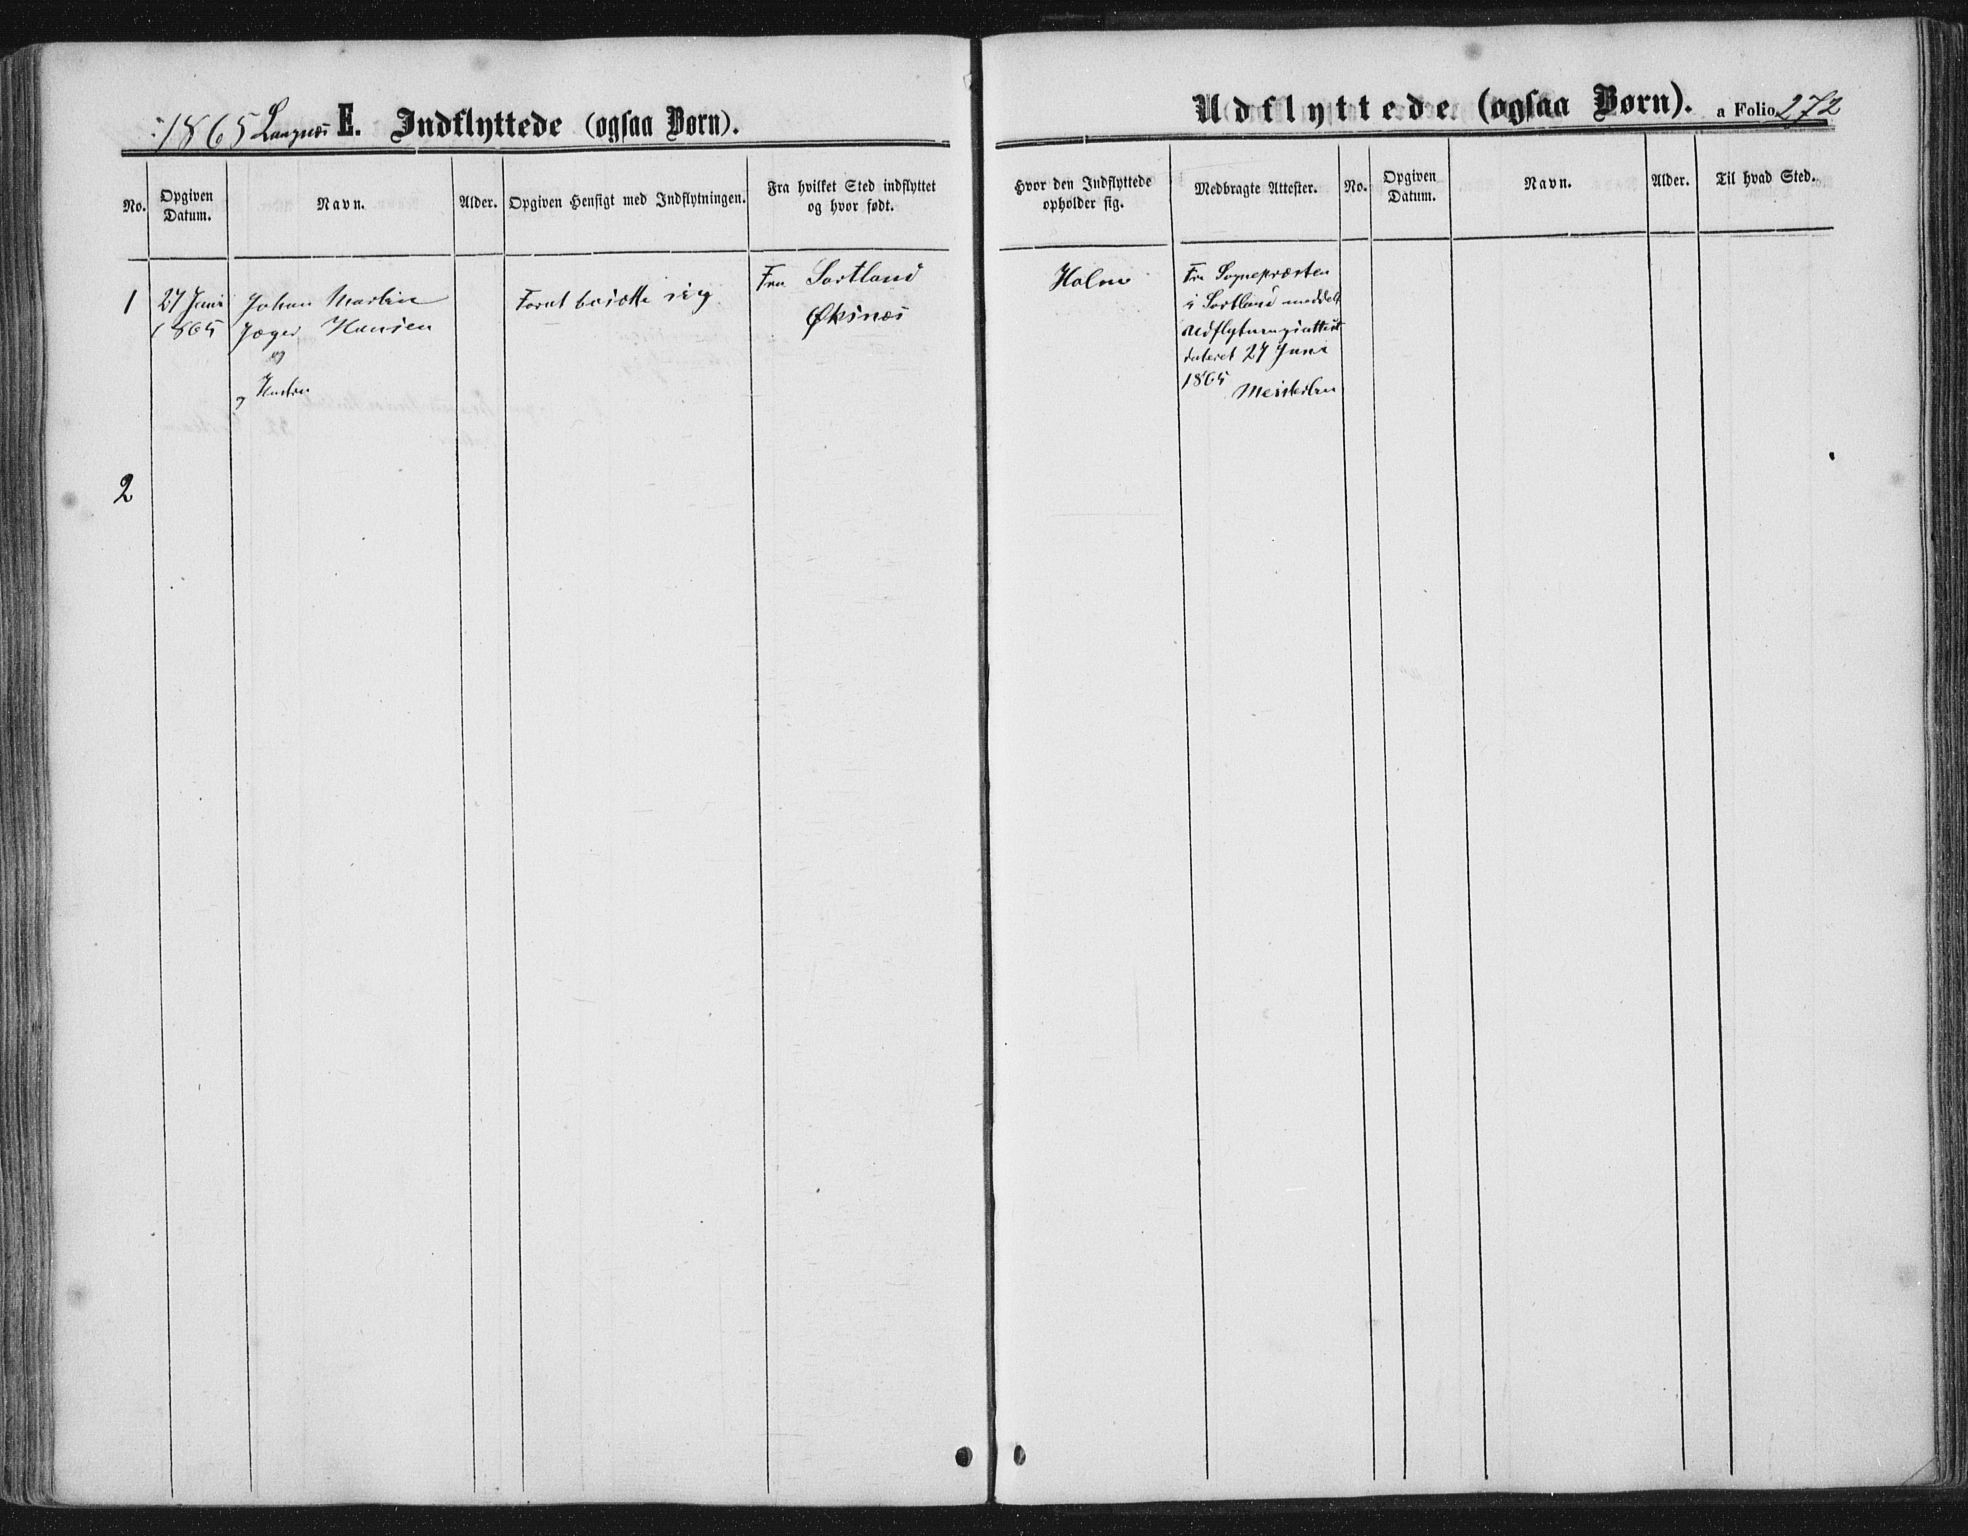 1865 Langnæs E. Indflyttede (ogsaa Børn).
No.
Opgiven
Datum.
Navn.
Alder.
Opgiven Hensigt med Indflytningen.
Fra hvilket Sted indflyttet
og hvor født.
1
27 Juni
1865
Johan Martin
Jæger Hansen
og
og Hustru
Forat bosætte sig
Fra Sortland
Øksnæs
2
Udflyttede (ogsaa Børn). a Folio 272
Hvor den Indflyttede
opholder sig.
Medbragte Attester.
No.
Opgiven
Datum.
Navn.
Alder.
Til hvad Sted.
Holm
Fra Sognepræsten
i Sortland meddelt
Udflytningsattest
dateret 27 Juni
1865